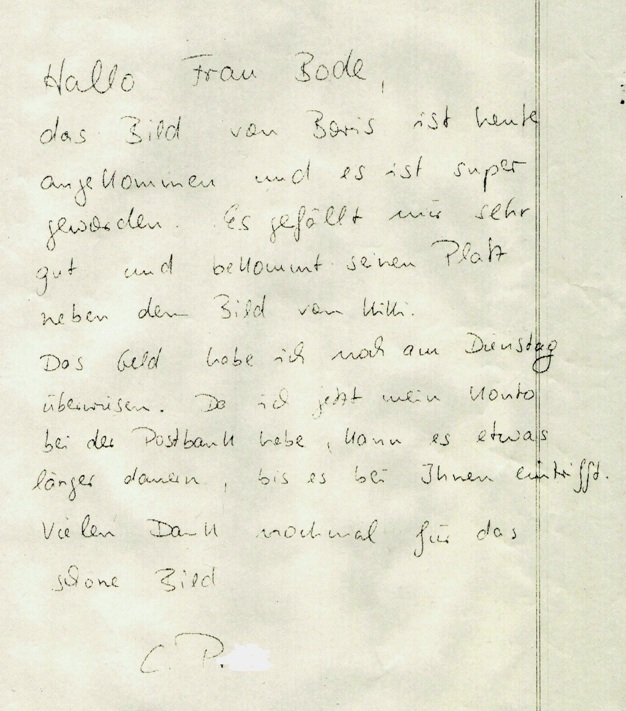 Hallo Frau Bode,
das Bild von Boris ist heute
angekommen und es ist super
geworden. Es gefällt mir sehr
gut und bekommt seinen Platz
neben dem Bild von Kikki.
Das Geld habe ich noch am Dienstag
überwiesen. Da ich jetzt mein Konto
bei der Postbank habe, kann es etwas
länger dauern, bis es bei Ihnen eintrifft.
Vielen Dank nochmal für das
schöne Bild
C. P.